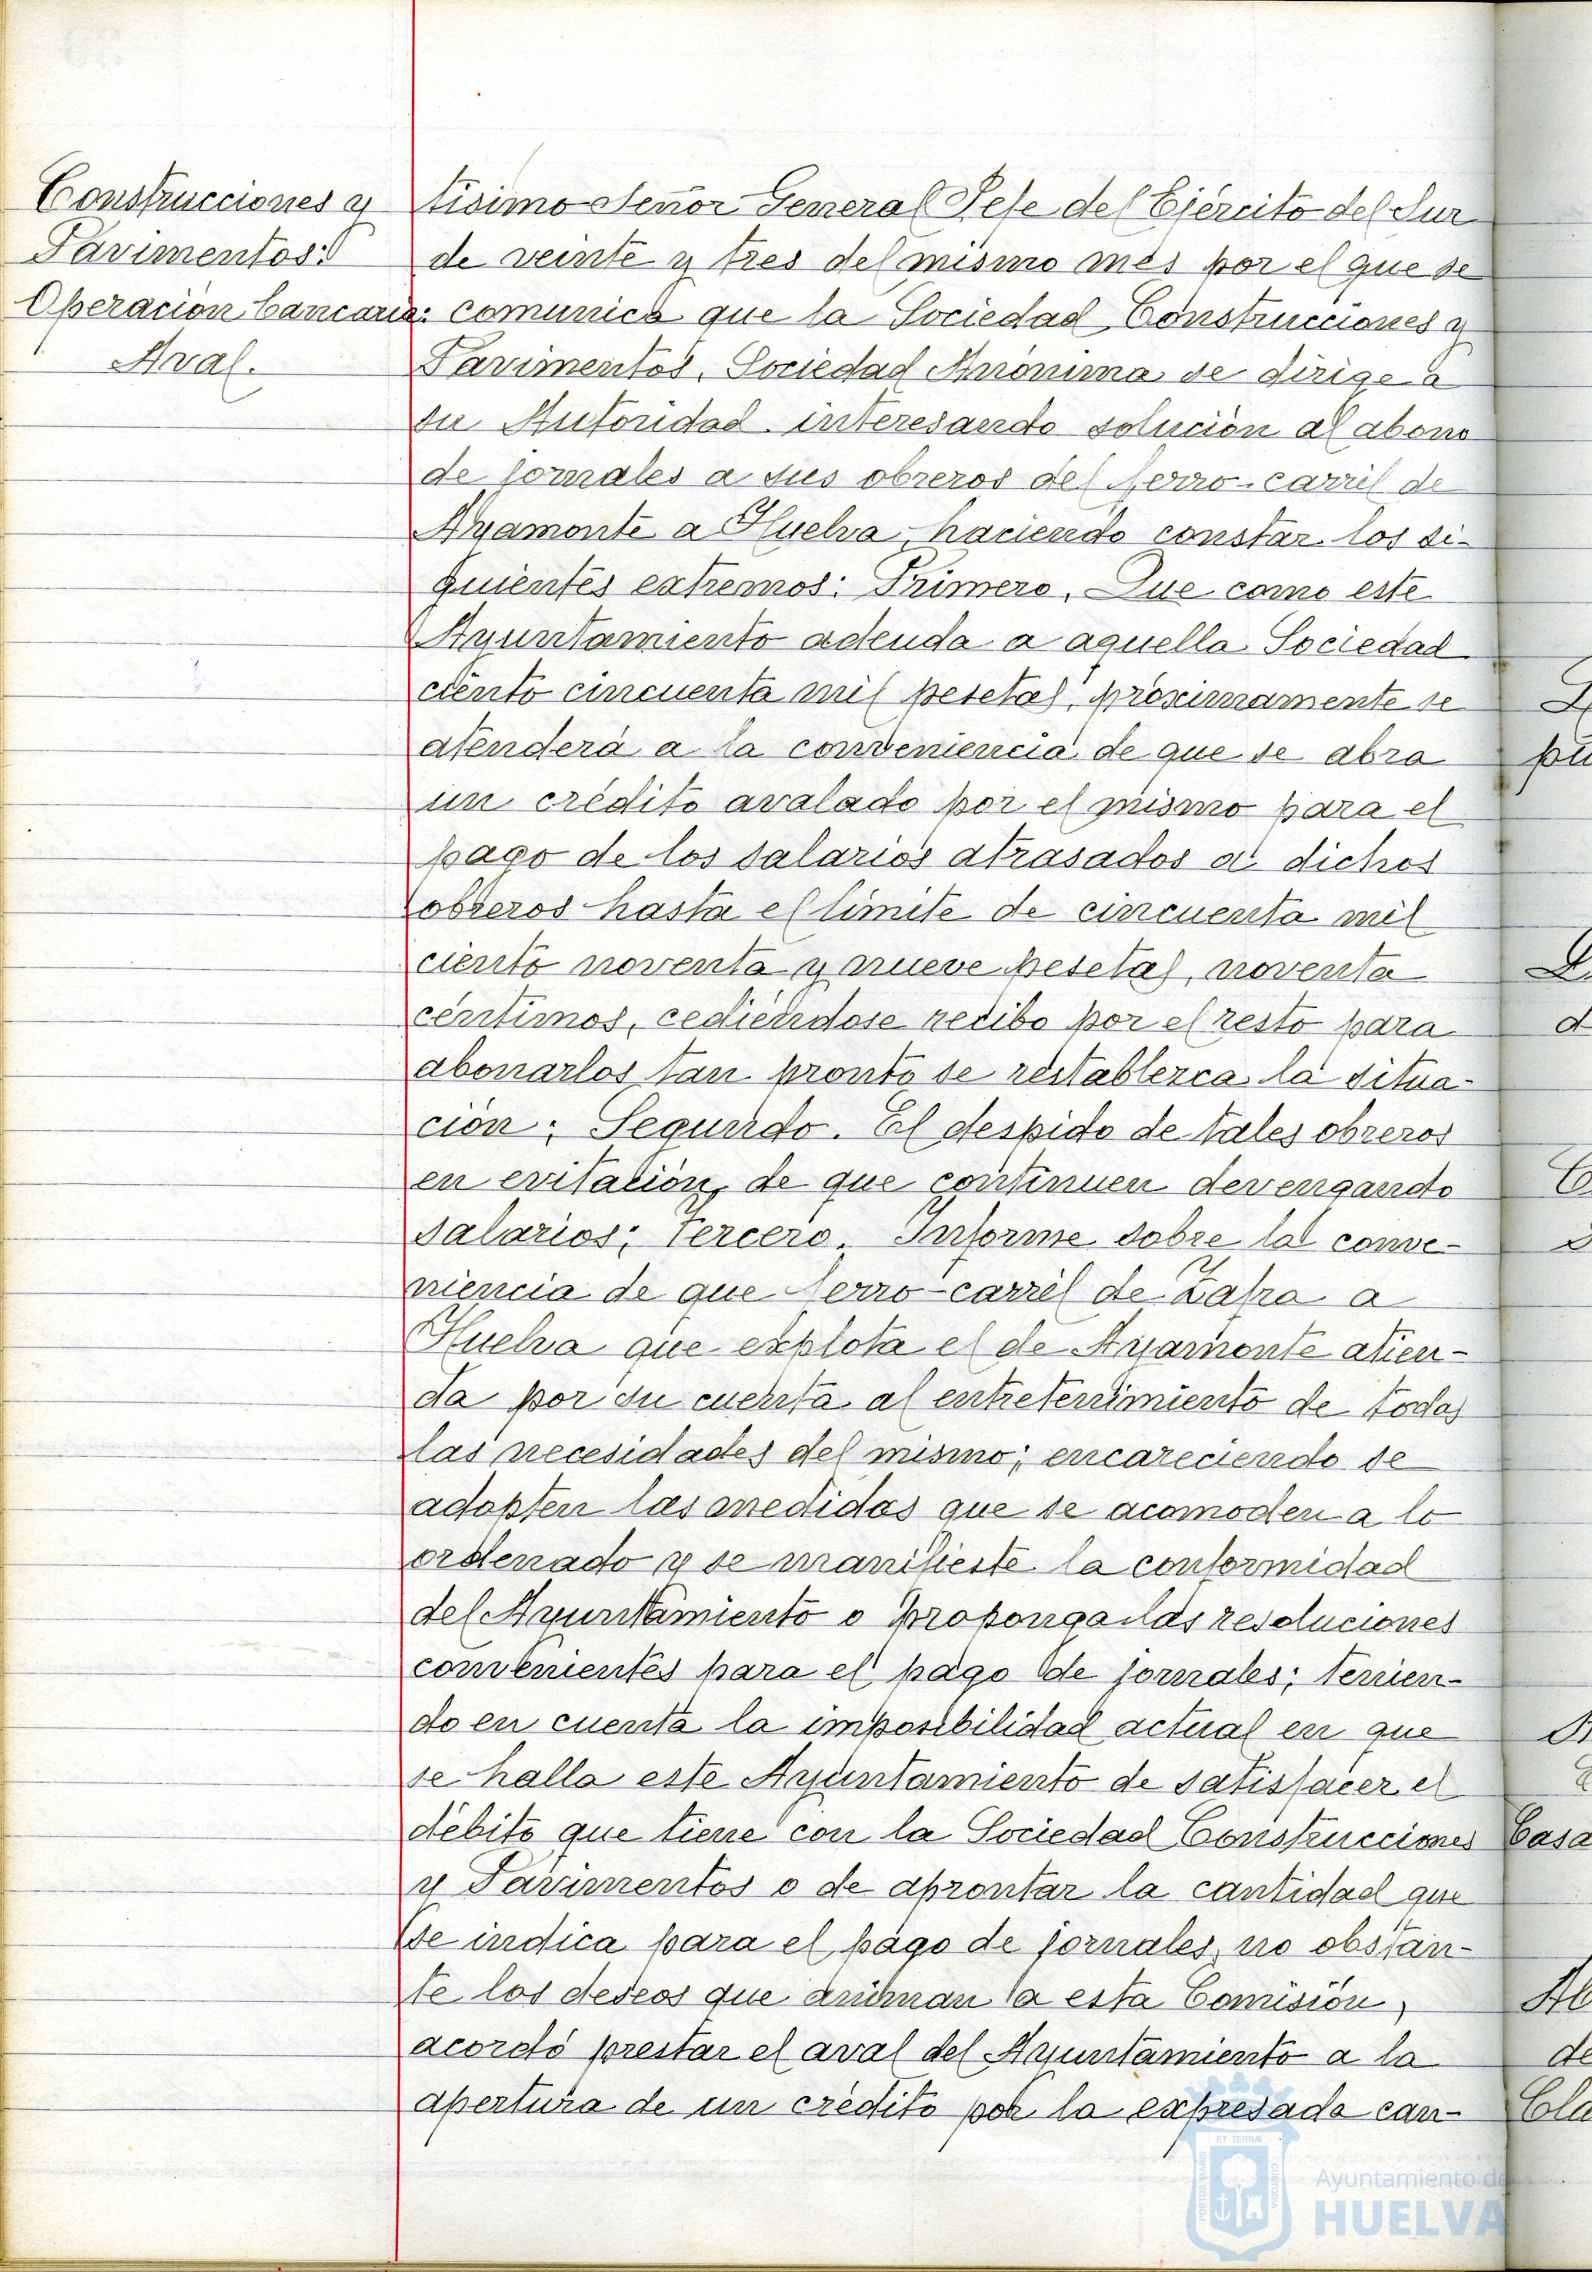 Construcciones y
Pavimentos:
Operación bancaria:
Aval.
tisimo Señor General Jefe del Ejército del Sur
de veinte y tres del mismo mes por el que se
comunica que la Sociedad Construcciones y
Pavimentos, Sociedad Anónima se dirige a
su Autoridad interesando solución al abono
de jornales a sus obreros del ferro-carril de
Ayamonte a Huelva, haciendo constar los si-
guientes extremos: Primero. Que como este
Ayuntamiento adeuda a aquella Sociedad
ciento cincuenta mil pesetas, próximamente se
atenderá a la conveniencia de que se abra
un crédito avalado por el mismo para el
pago de los salarios atrasados a dichos
obreros hasta el límite de cincuenta mil
ciento noventa y nueve pesetas, noventa
céntimos, cediéndose recibo por el resto para
abonarlos tan pronto se restablezca la situa-
ción; Segundo. El despido de tales obreros
en evitación de que continuen devengando
salarios; Tercero. Informe sobre la conve-
niencia de que ferro-carril de Zafra a
Huelva que explota el de Ayamonte atien-
da por su cuenta al entretenimiento de todas
las necesidades del mismo; encareciendo se
adopten las medidas que se acomoden a lo
ordenado y se manifieste la conformidad
del Ayuntamiento o proponga las resoluciones
convenientes para el pago de jornales; tenien-
do en cuenta la imposibilidad actual en que
se halla este Ayuntamiento de satisfacer el
débito que tiene con la Sociedad Construcciones
y Pavimentos o de aprontar la cantidad que
se indica para el pago de jornales, no obstan-
te los deseos que animan a esta Comisión,
acordó prestar el aval del Ayuntamiento a la
apertura de un crédito por la expresada can-
pu
Casa
de
Cla
ET TERRÆ
PORTUS MARIS
CUSTODIA
Ayuntamiento de
HUELVA